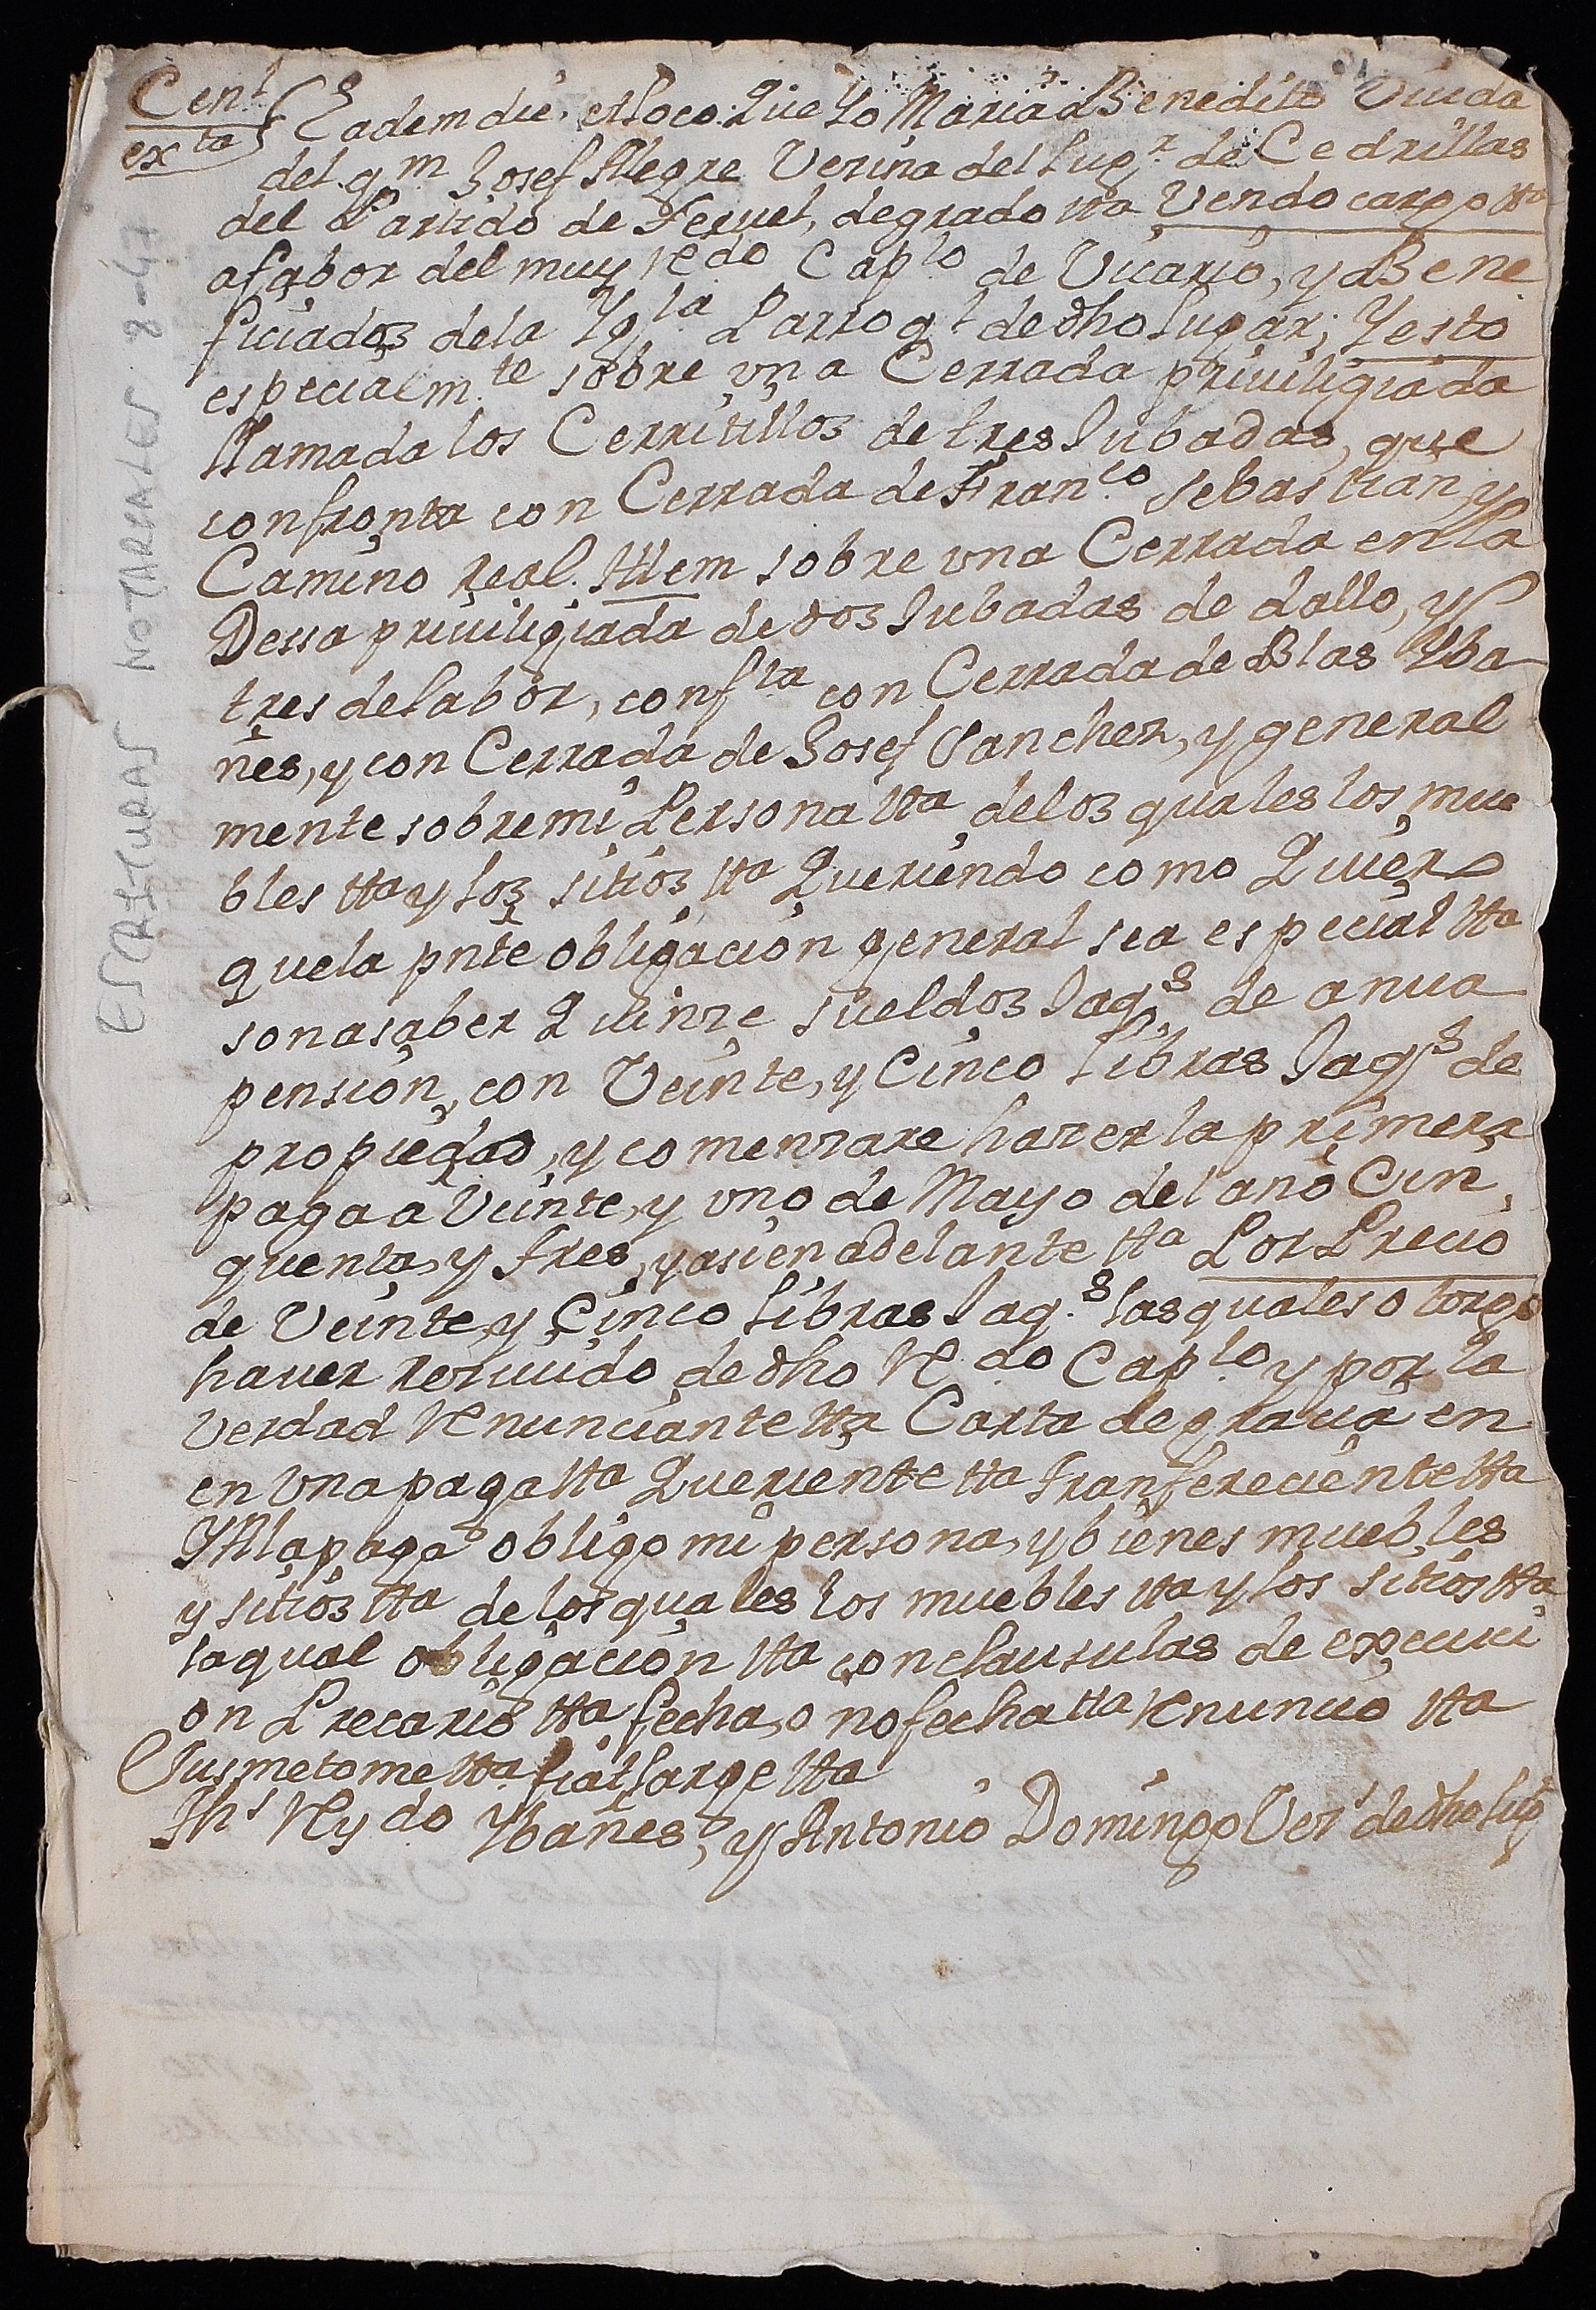 Cen.l
ex.ta
Eadem die, et loco. Que Yo Maria Benedito Viuda
del q.m Josef Alegre Vezina del Lug.r de Cedrillas
del Partido de Teruel, de grado tta Vendo cargo tta
a fabor del muy R.do Cap.lo de Vicario, y Bene
ficiados de la Ygl.ia Parroq.l de dho Lugar; Y esto
especialm.te sobre vna Cerrada priviligiada
llamada los Cerritillos de tres Jubadas, que
confronta con Cerrada de Fran.co Sebastian y
Camino real. Ittem sobre vna Cerrada en la
Dessa priviligiada de dos Jubadas de dallo, y
tres de labor, conf.ta con Cerrada de Blas Yba
ñes, y con Cerrada de Josef Sanchez, y general
mente sobre mi Persona tta de los quales los mue
bles tta y los sitios tta Queriendo como Quiero
que la pnte obligacion general sea especial tta
son a saber Quinze sueldos Jaq.s de anua
pension, con Veinte, y Cinco libras Jaq.s de
propiedad, y comenzare hazer la primera
paga a Veinte, y vno de Mayo del año Cin
quenta, y tres, y asi en adelante tta Por Precio
de Veinte, y Cinco libras Jaq.s las quales otorgo
haver rezivido de dho R.do Cap.lo y por la
Verdad Renunciante tta Carta de gracia en
en vna paga tta Queriente tta Tranfereciente tta
Y A la paga obligo mi persona, y bienes muebles
y sitios tta de los quales los muebles tta y los sitios tta
la qual obligacion tta con clausulas de execuci
on Precario tta fecha, o no fecha tta Renuncio tta
Jusmetome tta fiat large tta
Ths Rydo Ybañes, y Antonio Domingo Vez.s de dho lug
ESCRITURAS NOTARIALES 8-47